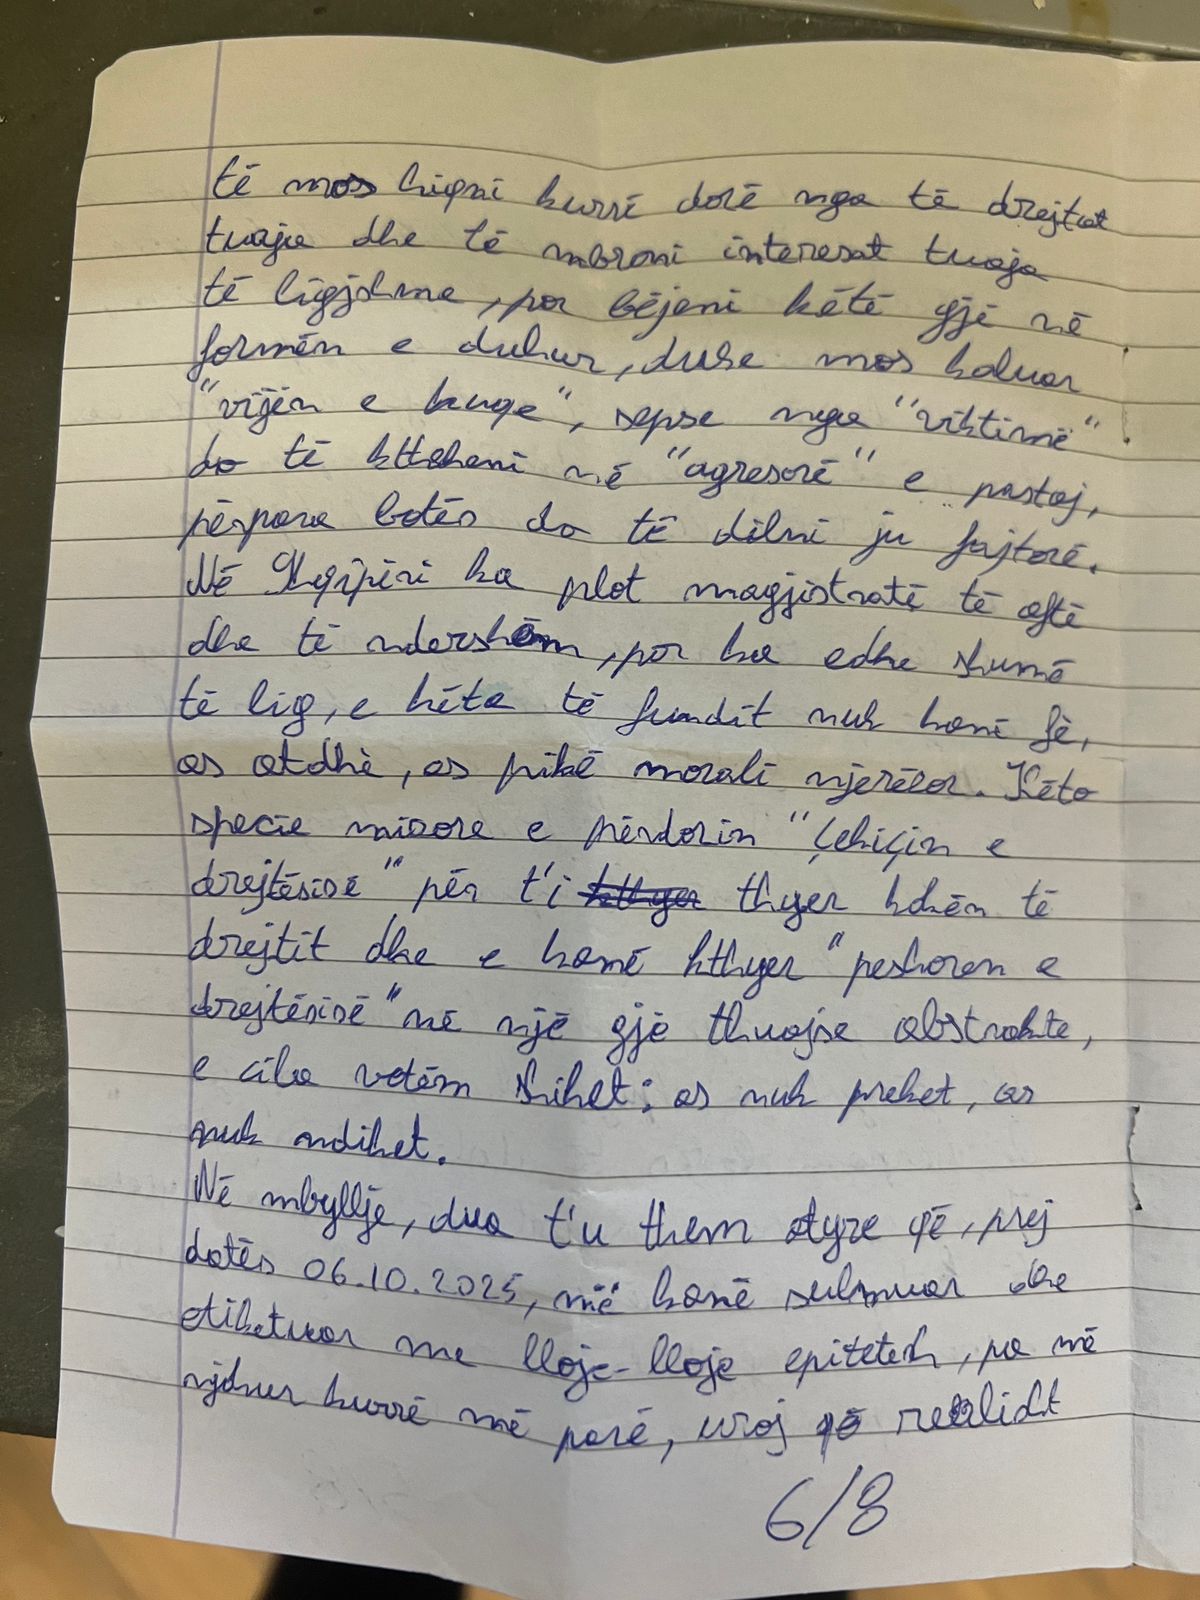 të mos hiqni kurrë dorë nga të drejtat
tuaja dhe të mbroni interesat tuaja
të ligjshme, por bëjeni këtë gjë në
formën e duhur, duke mos kaluar
"vijën e kuqe", sepse nga "viktimë"
do të ktheheni në "agresorë" e pastaj,
përpara botës do të dilni ju fajtorë.
Në Shqipëri ka plot magjistratë të aftë
dhe të ndershëm, por ka edhe shumë
të lig, e këta të fundit nuk kanë fè,
as atdhè, as pikë morali njerëzor. Këto
specie mizore e përdorin "çekiçin e
drejtësisë" për t'i kthyer thyer kokën të
drejtit dhe e kanë kthyer "peshoren e
drejtësisë" në një gjë thuajse abstrakte,
e cila vetëm shihet; as nuk preket, as
nuk ndihet.
Në mbyllje, dua t'u them atyre që, prej
datës 06.10.2025, më kanë sulmuar dhe
etiketuar me lloje-lloje epitetesh, pa më
njohur kurrë më parë, uroj që realisht
6/8